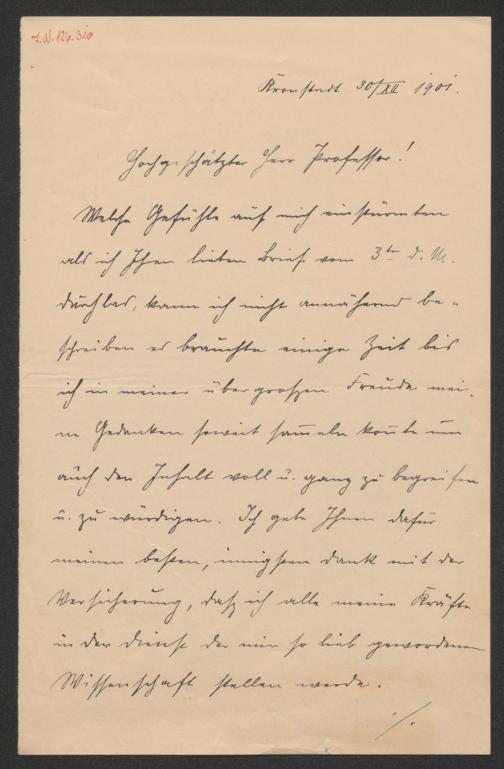 I.N. 124.310
Kronstadt 30/XII 1901.
Hochgeschätzter Herr Professor!
Welche Gefühle auf mich einstürmten
als ich Ihren lieben Brief vom 3ten d. M.
durchlas, kann ich nicht annähernd be-
schreiben es brauchte einige Zeit bis
ich in meiner übergroßen Freude mei-
ne Gedanken soweit sam̄eln kon̄te um
auch den Inhalt voll u. ganz zu begreifen
u. zu würdigen. Ich gebe Ihnen dafür
meinen besten, innigsten Dank mit der
Versicherung, daß ich alle meine Kräfte
in den Dienst der mir so lieb gewordenen
Wissenschaft stellen werde.
./.